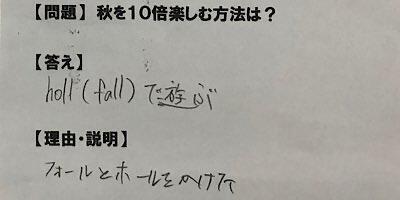 【問題】秋を10倍楽しむ方法は？
【答え】
holl(fall)で遊ぶ
【理由・説明】
フォールとホールをかけて